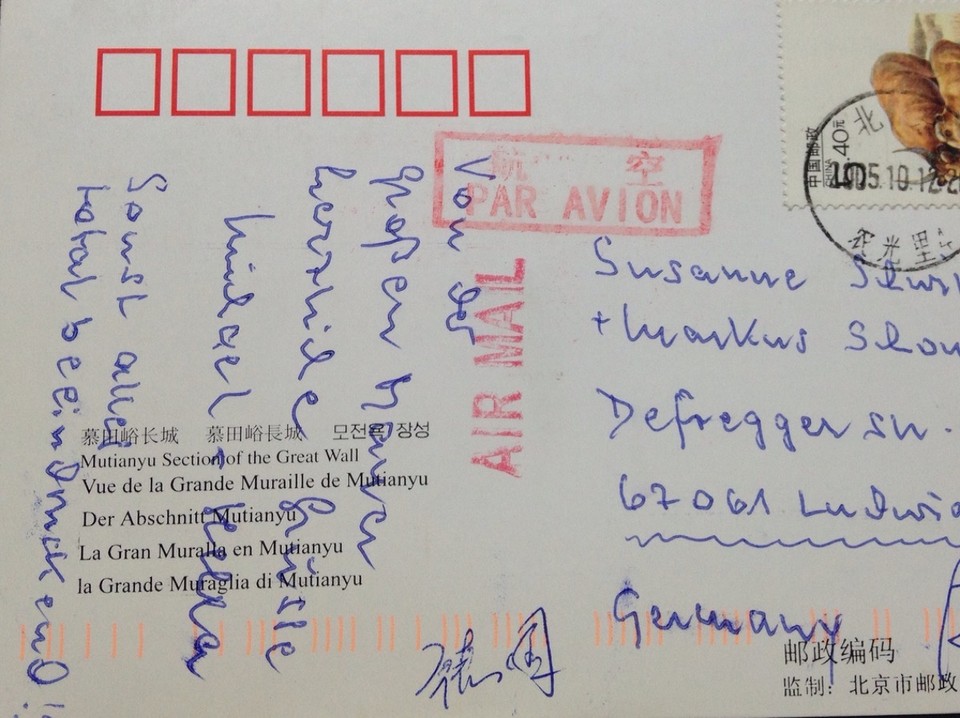 航 空
PAR AVION
AIR MAIL
中国邮政
.40元
2005.10.12.2
北
Von der
großen Mauer
herzliche Grüße
Sonst alles
total beeindruckend!
Susanne
+ Markus
Defreggerstr.
67061 Ludwig
Germany
慕田峪长城 慕田峪長城 모전욕 장성
Mutianyu Section of the Great Wall
Vue de la Grande Muraille de Mutianyu
Der Abschnitt Mutianyu
La Gran Muralla en Mutianyu
la Grande Muraglia di Mutianyu
邮政编码
监制：北京市邮政